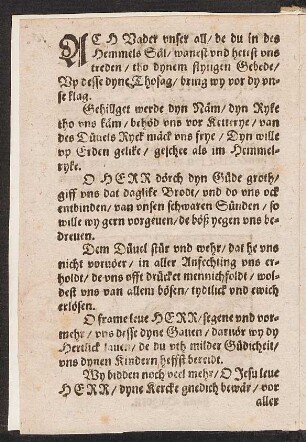 ACH Vader vnser all / de du in des
Hemmels Säl / wanest vnd hetest vns
treden / tho dynem flytigen Gebede /
Vp desse dyne Thosag / bring wy vor dy vn-
se klag.
Gehilliget werde dyn Näm / dyn Ryke
tho vns käm / behöd vns vor Ketterye / van
des Düuels Ryck mäck vns frye / Dyn wille
vp Erden gelike / geschee als im Hemmel-
ryke.
O HERR dörch dyn Güde groth /
giff vns dat daglike Brodt / vnd do vns ock
entbinden / van vnsen schwaren Sünden / so
wille wy gern vorgeuen / de böß yegen vns be-
dreuen.
Dem Düuel stür vnd wehr / dat he vns
nicht voruöer / in aller Anfechting vns er-
holdt / de vns offt drücket mennichfoldt / wol-
dest vns van allem bösen / tydtlick vnd ewich
erlösen.
O frame leue HERR / segene vnd vor-
mehr / vns desse dyne Gauen / daruör wy dy
Hertlick lauen / de du vth milder Güdicheit /
vns dynen Kindern heffst bereidt.
Wy bidden noch veel mehr / O Jesu leue
HERR / dyne Kercke gnedich bewär / vor
aller